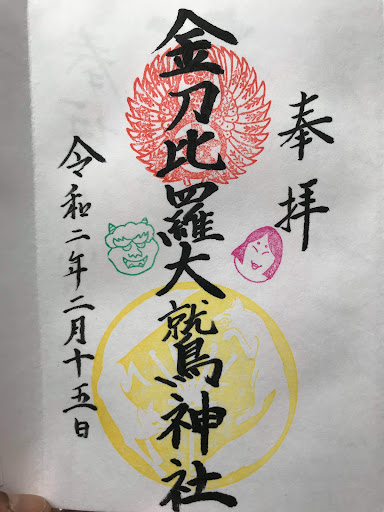 奉拝
金刀比羅大鷲神社
令和二年二月十五日